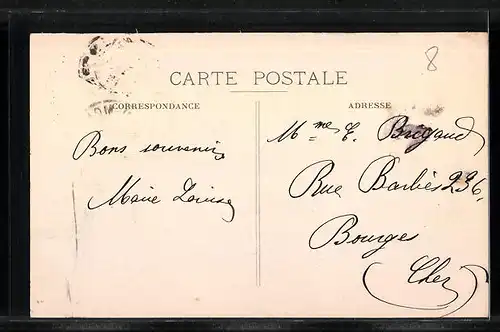 8
CARTE POSTALE
CORRESPONDANCE
ADRESSE
Bons souvenirs
Marie Louise
Mme E. Brigaud
Rue Barbès 236,
Bourges
(Cher)